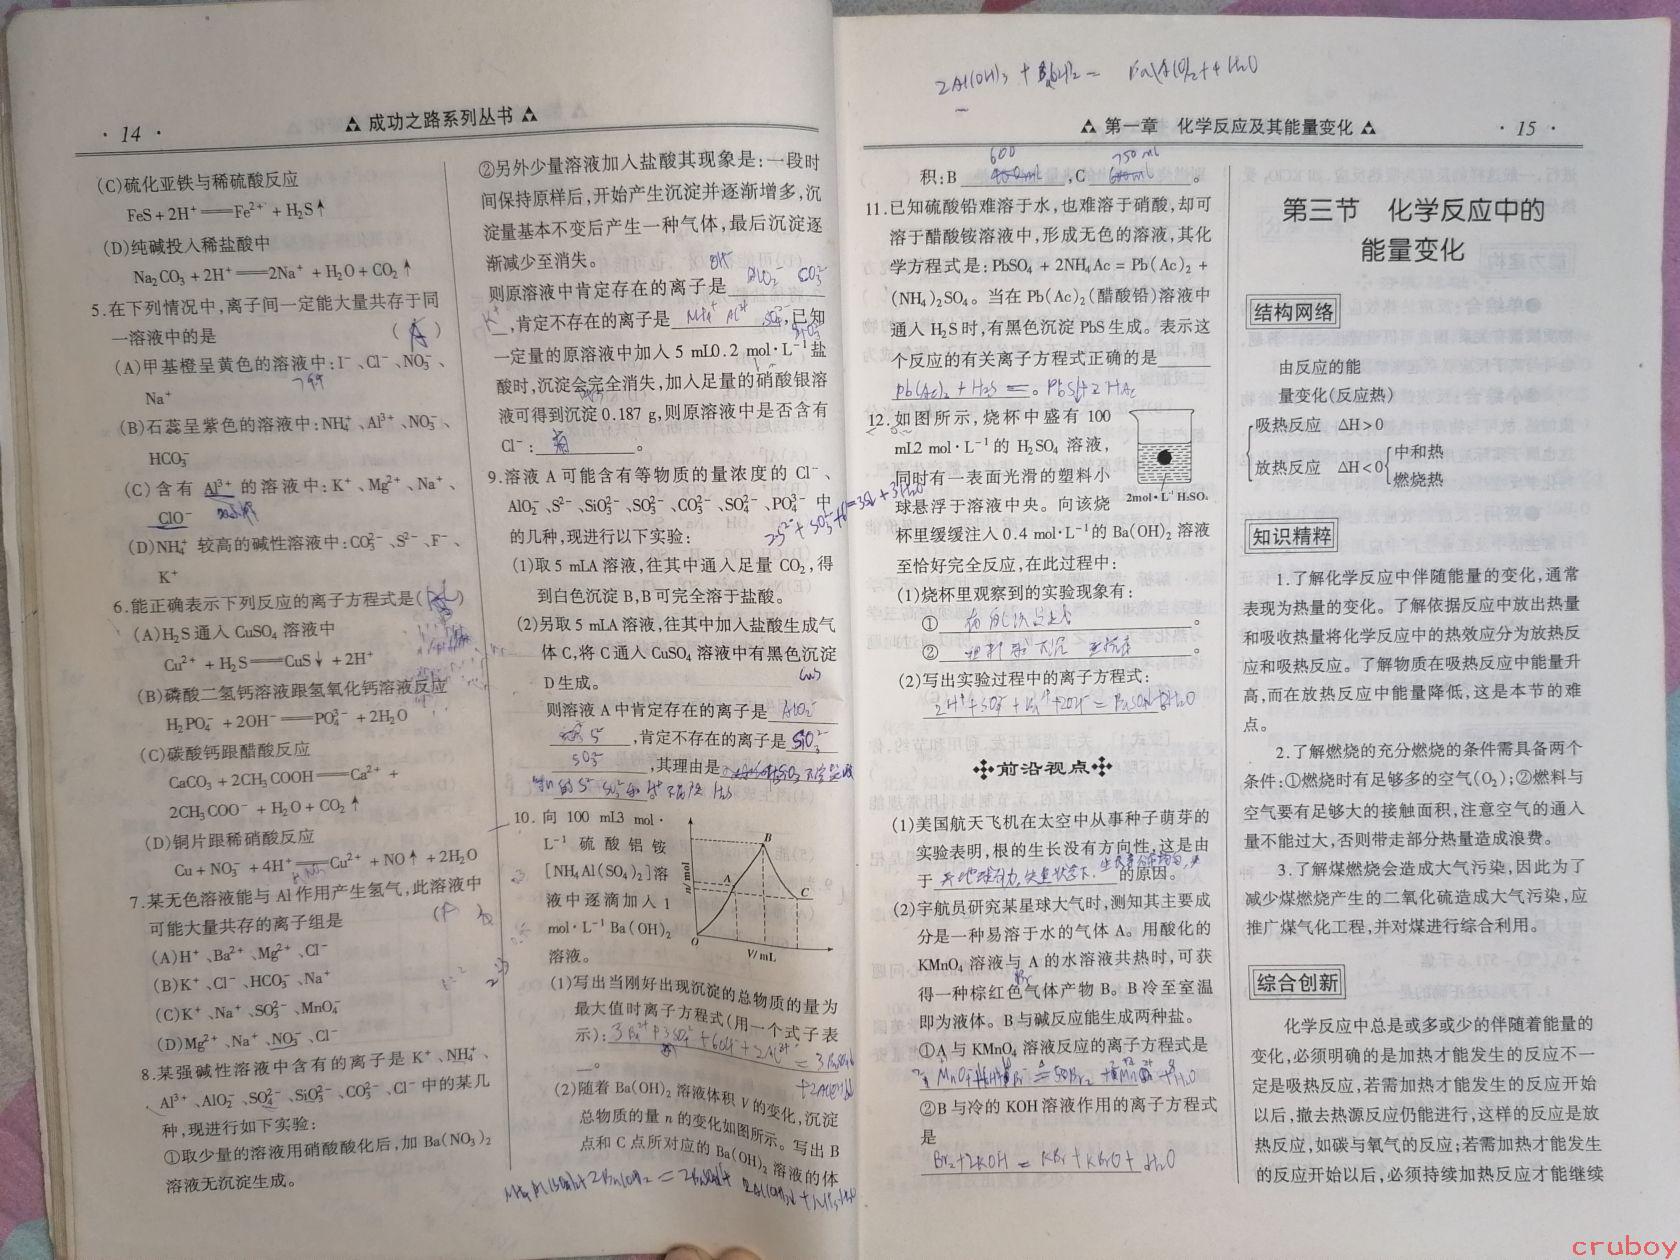 · 14 ·
成功之路系列丛书
(C)硫化亚铁与稀硫酸反应
FeS+2H⁺══Fe²⁺+H₂S↑
(D)纯碱投入稀盐酸中
Na₂CO₃+2H⁺══2Na⁺+H₂O+CO₂↑
5.在下列情况中,离子间一定能大量共存于同
一溶液中的是 ( A )
(A)甲基橙呈黄色的溶液中:I⁻、Cl⁻、NO₃⁻、
Na⁺
(B)石蕊呈紫色的溶液中:NH₄⁺、Al³⁺、NO₃⁻、
HCO₃⁻
(C)含有 Al³⁺ 的溶液中:K⁺、Mg²⁺、Na⁺、
ClO⁻
(D)NH₄⁺ 较高的碱性溶液中:CO₃²⁻、S²⁻、F⁻、
K⁺
6.能正确表示下列反应的离子方程式是( )
(A)H₂S通入 CuSO₄ 溶液中
Cu²⁺+H₂S══CuS↓+2H⁺
(B)磷酸二氢钙溶液跟氢氧化钙溶液反应
H₂PO₄⁻+2OH⁻══PO₄³⁻+2H₂O
(C)碳酸钙跟醋酸反应
CaCO₃+2CH₃COOH══Ca²⁺+
2CH₃COO⁻+H₂O+CO₂↑
(D)铜片跟稀硝酸反应
Cu+NO₃⁻+4H⁺══Cu²⁺+NO↑+2H₂O
7.某无色溶液能与 Al作用产生氢气,此溶液中
可能大量共存的离子组是 ( )
(A)H⁺、Ba²⁺、Mg²⁺、Cl⁻
(B)K⁺、Cl⁻、HCO₃⁻、Na⁺
(C)K⁺、Na⁺、SO₃²⁻、MnO₄⁻
(D)Mg²⁺、Na⁺、NO₃⁻、Cl⁻
8.某强碱性溶液中含有的离子是 K⁺、NH₄⁺、
Al³⁺、AlO₂⁻、SO₄²⁻、SiO₃²⁻、CO₃²⁻、Cl⁻中的某几
种,现进行如下实验:
①取少量的溶液用硝酸酸化后,加 Ba(NO₃)₂
溶液无沉淀生成。
②另外少量溶液加入盐酸其现象是:一段时
间保持原样后,开始产生沉淀并逐渐增多,沉
淀量基本不变后产生一种气体,最后沉淀逐
渐减少至消失。
OH⁻ AlO₂⁻ CO₃²⁻
则原溶液中肯定存在的离子是
K⁺ ,肯定不存在的离子是 NH₄⁺ Al³⁺ SO₄²⁻ SiO₃²⁻ ,已知
一定量的原溶液中加入 5 mL0.2 mol·L⁻¹盐
酸时,沉淀会完全消失,加入足量的硝酸银溶
液可得到沉淀 0.187 g,则原溶液中是否含有
Cl⁻: 。
9.溶液 A 可能含有等物质的量浓度的 Cl⁻、
AlO₂⁻、S²⁻、SiO₃²⁻、SO₃²⁻、CO₃²⁻、SO₄²⁻、PO₄³⁻ 中
的几种,现进行以下实验:
(1)取5 mLA 溶液,往其中通入足量 CO₂,得
到白色沉淀 B,B可完全溶于盐酸。
(2)另取 5 mLA溶液,往其中加入盐酸生成气
体 C,将 C通入 CuSO₄ 溶液中有黑色沉淀
D生成。 CuS
则溶液 A 中肯定存在的离子是 AlO₂⁻
S²⁻ ,肯定不存在的离子是 SiO₃²⁻
SO₃²⁻ ,其理由是
10.向 100 mL3 mol·
L⁻¹ 硫酸铝铵
[NH₄Al(SO₄)₂]溶
液中逐滴加入 1
mol·L⁻¹ Ba(OH)₂
溶液。
n/mol
A
B
C
O
V/mL
(1)写出当刚好出现沉淀的总物质的量为
最大值时离子方程式(用一个式子表
示): 3Ba²⁺+3SO₄²⁻+6OH⁻+2Al³⁺
= 3BaSO₄↓
+2Al(OH)₃↓
。
(2)随着 Ba(OH)₂ 溶液体积 V的变化,沉淀
总物质的量 n 的变化如图所示。写出 B
点和 C 点所对应的 Ba(OH)₂ 溶液的体
2Al(OH)₃ + Ba(OH)₂ = Ba(AlO₂)₂+4H₂O
第一章 化学反应及其能量变化
· 15 ·
600 750 ml
积:B ,C 。
11.已知硫酸铅难溶于水,也难溶于硝酸,却可
溶于醋酸铵溶液中,形成无色的溶液,其化
学方程式是:PbSO₄+2NH₄Ac=Pb(Ac)₂+
(NH₄)₂SO₄。当在 Pb(Ac)₂(醋酸铅)溶液中
通入 H₂S时,有黑色沉淀 PbS生成。表示这
个反应的有关离子方程式正确的是
Pb(Ac)₂+H₂S══PbS↓+2HAc 。
12.如图所示,烧杯中盛有 100
mL2 mol·L⁻¹ 的 H₂SO₄ 溶液,
同时有一表面光滑的塑料小
球悬浮于溶液中央。向该烧
2mol·L⁻¹ H₂SO₄
杯里缓缓注入 0.4 mol·L⁻¹的 Ba(OH)₂ 溶液
至恰好完全反应,在此过程中:
(1)烧杯里观察到的实验现象有:
① 。
② 。
(2)写出实验过程中的离子方程式:
前沿视点
(1)美国航天飞机在太空中从事种子萌芽的
实验表明,根的生长没有方向性,这是由
于 的原因。
(2)宇航员研究某星球大气时,测知其主要成
分是一种易溶于水的气体 A。用酸化的
KMnO₄ 溶液与 A 的水溶液共热时,可获
得一种棕红色气体产物 B。B冷至室温
即为液体。B与碱反应能生成两种盐。
①A与 KMnO₄ 溶液反应的离子方程式是
②B与冷的 KOH溶液作用的离子方程式
是
Br₂+2KOH = KBr+KBrO+H₂O
第三节 化学反应中的
能量变化
结构网络
由反应的能
量变化(反应热)
吸热反应 ΔH>0
放热反应 ΔH<0
中和热
燃烧热
知识精粹
1.了解化学反应中伴随能量的变化,通常
表现为热量的变化。了解依据反应中放出热量
和吸收热量将化学反应中的热效应分为放热反
应和吸热反应。了解物质在吸热反应中能量升
高,而在放热反应中能量降低,这是本节的难
点。
2.了解燃烧的充分燃烧的条件需具备两个
条件:①燃烧时有足够多的空气(O₂);②燃料与
空气要有足够大的接触面积,注意空气的通入
量不能过大,否则带走部分热量造成浪费。
3.了解煤燃烧会造成大气污染,因此为了
减少煤燃烧产生的二氧化硫造成大气污染,应
推广煤气化工程,并对煤进行综合利用。
综合创新
化学反应中总是或多或少的伴随着能量的
变化,必须明确的是加热才能发生的反应不一
定是吸热反应,若需加热才能发生的反应开始
以后,撤去热源反应仍能进行,这样的反应是放
热反应,如碳与氧气的反应;若需加热才能发生
的反应开始以后,必须持续加热反应才能继续
cruboy